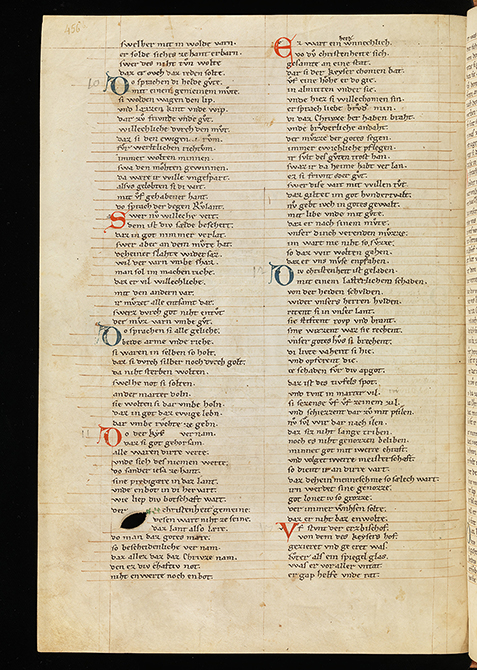 456
swelher mit im wolde varn.
er solde siches ze hant erbarn.
swer des niht tůn wolte
daz er ouch daz reden solte.
Do sprachen di helde gůt.
mit einem gemeinem můte.
si wolden wagen den lip.
vnd lazzen kint vnde wip.
dar zů frivnde vnde gůt.
willechliche durch den můt.
daz si den ewigen
fůr werltlichen richtům.
immer wolten minnen.
swa den mohten gewinnen.
da ware ir wille vngespart.
alsus gelobten si di vart.
mit vf gehabener hant.
do sprach der degen Růlant.
Swer nv willeche vert:
dem ist div sælde beschert.
daz in got nimmer verlat.
swer aber an dem můte hat:
deheiner slahte widersaz.
wil der varn vmbe swaz.
man sol im machen riche.
daz er vil willechliche.
mit den andern var.
ir můzet alle entsamt dar.
swerz durch got niht entůt
der můz varn vmbe gůt.
Do sprachen si alle geliche.
beide arme vnde riche.
si waren in selben so holt.
daz si durch silber noch durch golt:
da niht sterben wolten.
swelhe not si solten.
ander marter doln.
sie wolten si dar vmbe holn.
daz in got daz ewige lebn.
dar vmbe růchte ze gebn.
Do der key vernam.
daz si got gehorsam.
alle waren dirre verte.
vnde sich des niemen werte.
do sander iesa ze hant.
sine predigære in daz lant.
vnde enbot in di herrart.
wie liep div botschaft wart.
der christenheit gemeine.
vesen wart niht ze seine.
daz lant allo lære.
do man daz gotes mære.
so bescheidenliche ver nam.
daz allez daz daz Christ nam.
den er div chaftiv not.
niht enwerte noch enbot.
Ez wart ein here wnnechlich.
vo dv christenheite sich.
gesamte an eine stat.
daz si der keyser chomen bat.
vf eine hohe er do gie.
in almitten vnder sie.
vnde hiez si willechomen sin.
er sprach liebe brůder min.
di daz Christ her haben braht.
vnde brůderliche andaht.
der můzze des gotes segen.
immer ewichliche pflegen.
ir sult des gůten trost han.
swaz ir da heime habt ver lan.
ez si frivnt oder gůt.
swer dise vart mit willen tůt.
daz giltet im got hundertvalt.
nv gebt iuch in gotes gewalt.
mit libe vnde mit gůte.
daz er nach sinem můte.
vnser durch vererden můzze.
im wart nie niht so sůzze.
so daz wir wolten gehen.
daz er vns můse enpfahen.
Div christenheit ist geladen.
mit einem lasterlichem schaden.
von der heiden schvlden.
wider vnsers herren hvlden.
ritent si in vnser lant.
sie stiftent rovp vnd brant.
sine wizzent waz sie rechent.
vnser goteshvs si brechent.
di livte vahent si hie.
vnd opferent die.
ze schaden fůr div apgot.
daz ist des tivfels spot.
vnd tvnt in marter vil.
si sezzense vf vf zeinem zil.
vnd schiezzent dar zů mit pfilen.
nv svl wir dar nach ilen.
daz siz niht lange triben.
noch es niht genozzen beliben.
minner got mit iwerre chraft.
vnd volget iwerre meisterschaft.
so dient ir an dirre vart.
daz deheinem menschen so sælech wart:
irn werdet sine genozze.
got lonet iv so grozze.
der immer wnhsen solte.
daz er niht baz enwolte.
Vf stůnt der erzbischof.
von dem des keysers hof.
gezieret vnd ge eret was.
luter als ein spiegel glas.
was er vor aller vntat
er gap helfe vnde rat: